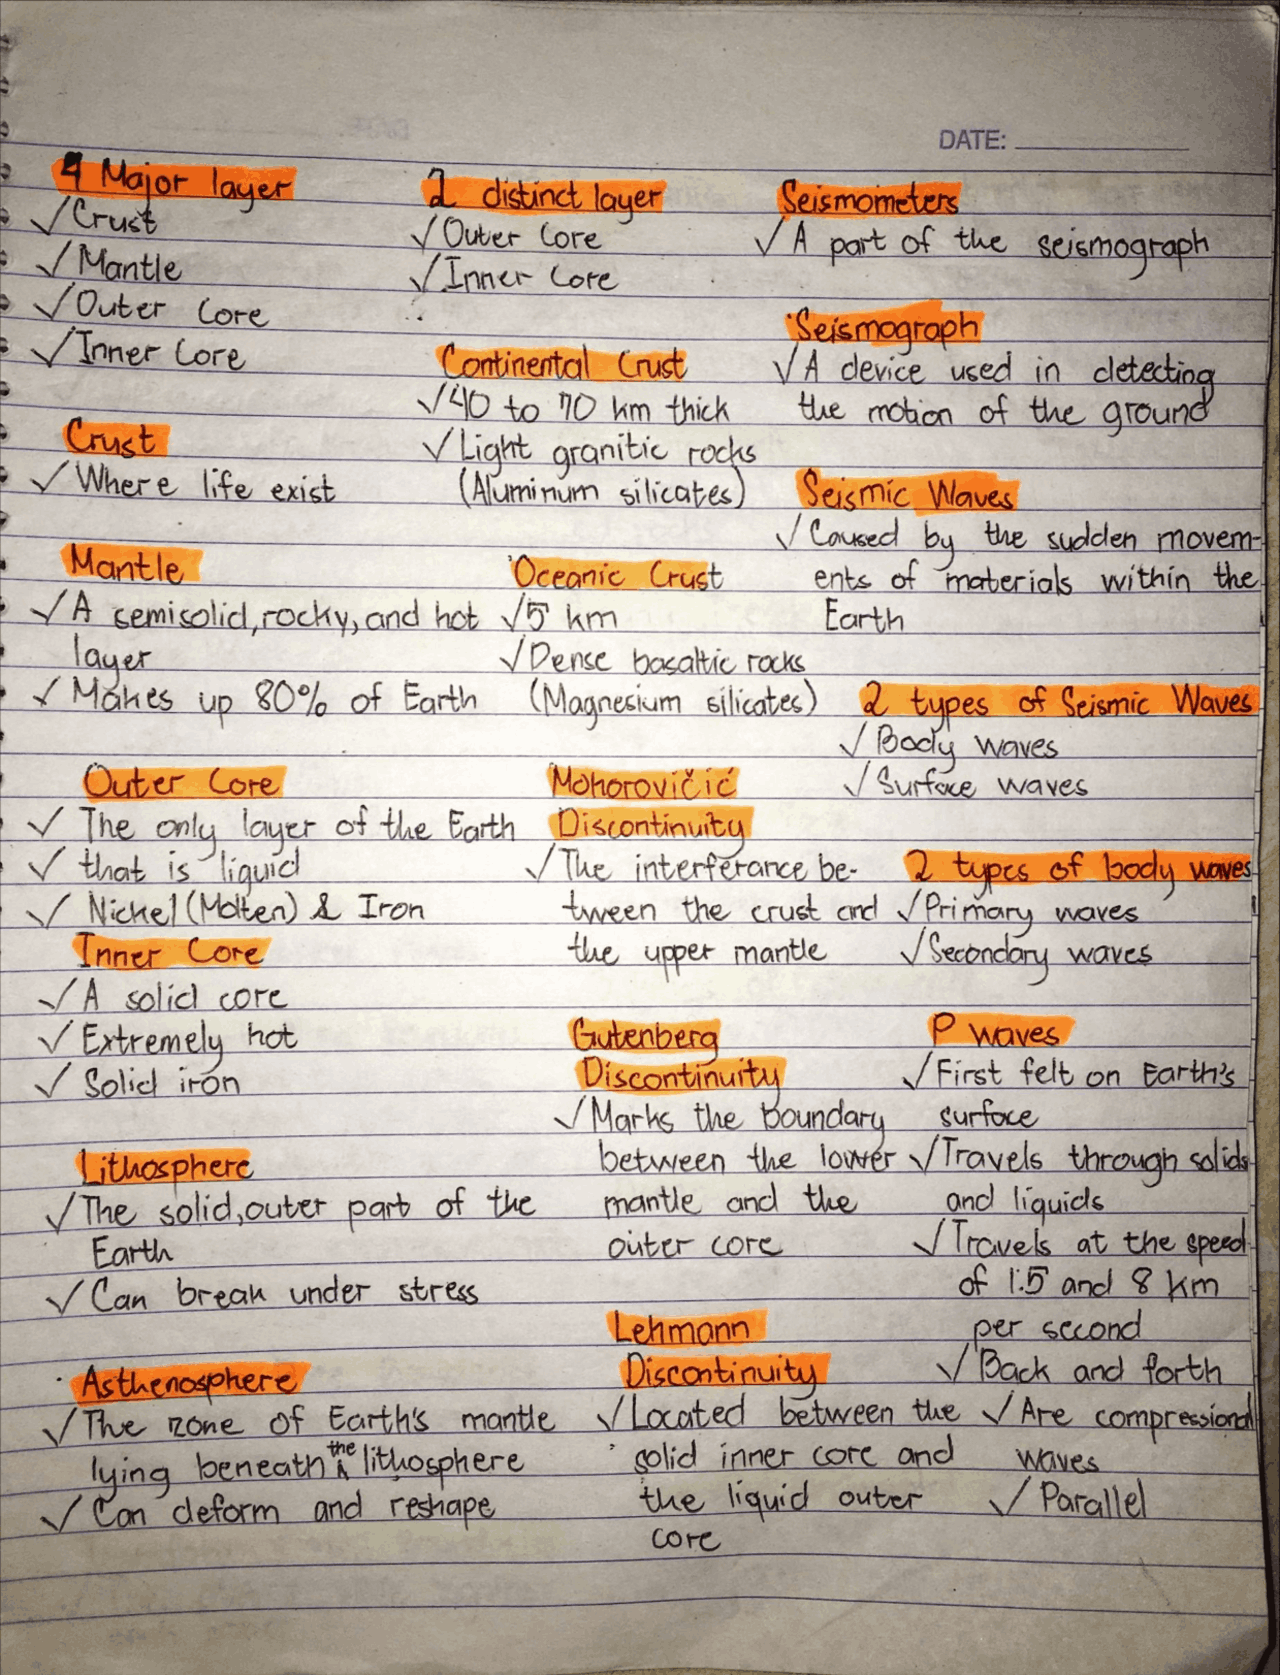 DATE:
4 Major layer
✓ Crust
✓ Mantle
✓ Outer Core
✓ Inner Core
Crust
✓ Where life exist
Mantle
✓ A semisolid, rocky, and hot
layer
✓ Makes up 80% of Earth
Outer Core
✓ The only layer of the Earth
✓ that is liquid
✓ Nickel (Molten) & Iron
Inner Core
✓ A solid core
✓ Extremely hot
✓ Solid iron
Lithosphere
✓ The solid, outer part of the
Earth
✓ Can break under stress
Asthenosphere
✓ The zone of Earth's mantle
lying beneath the lithosphere
✓ Can deform and reshape
2 distinct layer
✓ Outer Core
✓ Inner Core
Continental Crust
✓ 40 to 70 km thick
✓ Light granitic rocks
(Aluminum silicates)
Oceanic Crust
✓ 5 km
✓ Dense basaltic rocks
(Magnesium silicates)
Mohorovičić
Discontinuity
✓ The interferance be-
tween the crust and
the upper mantle
Gutenberg
Discontinuity
✓ Marks the boundary
between the lower
mantle and the
outer core
Lehmann
Discontinuity
✓ Located between the
solid inner core and
the liquid outer
core
Seismometers
✓ A part of the seismograph
Seismograph
✓ A device used in detecting
the motion of the ground
Seismic Waves
✓ Caused by the sudden movem-
ents of materials within the
Earth
2 types of Seismic Waves
✓ Body waves
✓ Surface waves
2 types of body waves
✓ Primary waves
✓ Secondary waves
P waves
✓ First felt on Earth's
surface
✓ Travels through solids
and liquids
✓ Travels at the speed
of 1.5 and 8 km
per second
✓ Back and forth
✓ Are compressional
waves
✓ Parallel